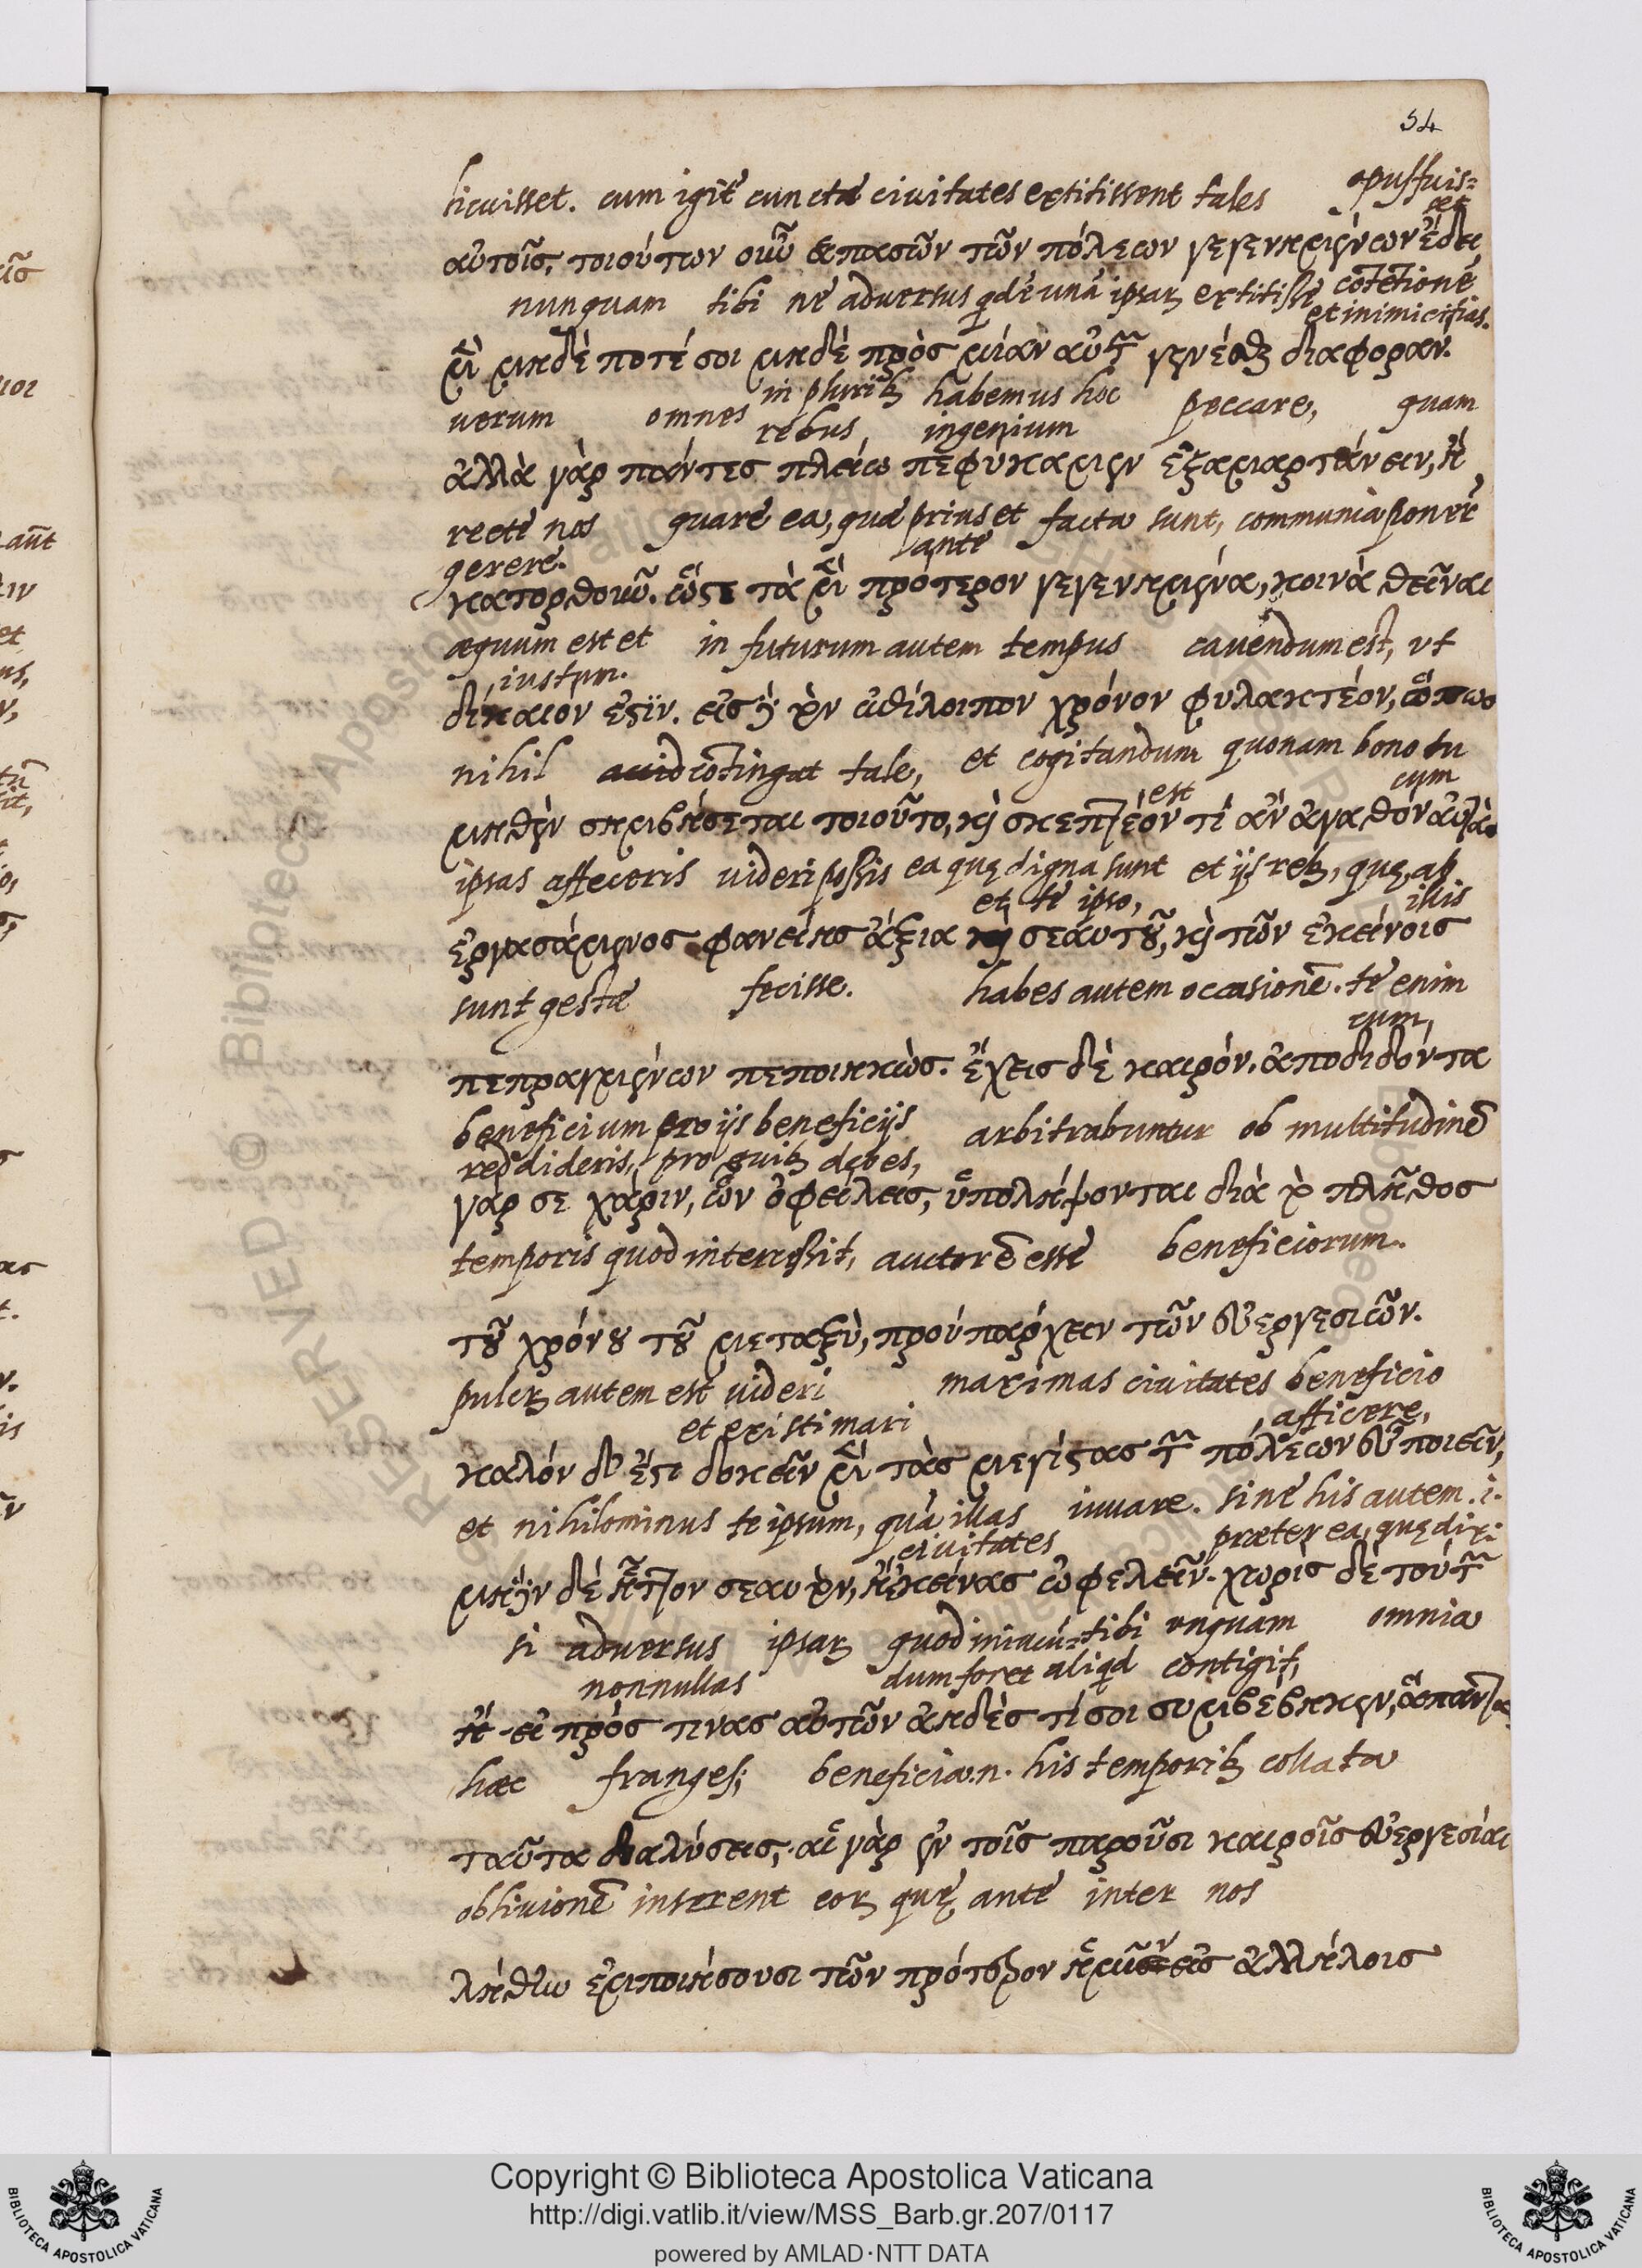 54
licuisset. cum igit͂ cunctæ ciuitates extitissent tales opus fuis=
set
αὐτοῖς, τοιούτων οὖν ἁπασῶν τῶν πόλεων γεγενημένων ἔδει
nunquam tibi ne aduersus qdẽ unã ipsarꝫ extitisse cõtẽtionẽ
et inimicitias.
μὲν μηδέ ποτέ σοι μηδὲ πρὸς μίαν αὐτῶν γενέσθαι διαφοράν.
uerum omnes in pluribꝫ habemus hoc peccare, quam
rebus ingenium
ἀλλὰ γὰρ πάντες πλείω πεφύκαμεν ἐξαμαρτάνειν, ἢ
recte nos quare ea, quæ prius et facta sunt, communia poner̃
gerere. ante
κατορθοῦν. ὥστε τὰ μὲν πρότερον γεγενημένα, κοινὰ θεῖναι
æquum est et in futurum autem tempus cauendum est, ut
iustum.
δίκαιόν ἐστιν. εἰς δὲ τὸν ἐπίλοιπον χρόνον φυλακτέον, ὅπως
nihil accid cõtingat tale, et cogitandum quonam bono tu
est cum
μηθὲν συμβήσεται τοιοῦτο, καὶ σκεπτέον τί ἂν ἀγαθὸν αὐτὰς
ipsas affeceris uideri possis ea quę digna sunt et ijs rebꝫ, quę ab
et te ipso, illis
ἐργασάμενος φανείης ἄξια καὶ σεαυτοῦ, καὶ τῶν ἐκείνοις
sunt gestæ fecisse. habes autem occasionẽ. te enim
cum,
πεπραγμένων πεποιηκώς. ἔχεις δὲ καιρόν. ἀποδιδόντα
beneficium pro ijs beneficijs arbitrabuntur ob multitudinẽ
reddideris, pro quibꝫ debes,
γάρ σε χάριν, ὧν ὀφείλεις, ὑπολήψονται διὰ τὸ πλῆθος
temporis quod intercessit, auctorẽ esse beneficiorum.
τοῦ χρόνου τοῦ μεταξὺ, προϋπάρχειν τῶν εὐεργεσιῶν.
pulcrꝫ autem est uideri maximas ciuitates beneficio
et existimari afficere,
καλὸν δ' ἔστι δοκεῖν μὲν τὰς μεγίστας τῶν πόλεων εὖ ποιεῖν,
et nihilominus te ipsum, quã illas iuuare. sine his autem .i.
ciuitates præter ea, quę dixi:
μηδὲν δὲ ἧττον σεαυτὸν, ἢ ἐκείνας ὠφελεῖν. χωρὶς δὲ τούτων
si aduersus ipsarꝫ quod iniucũ= tibi unquam omnia
nonnullas dum foret aliqd contigit,
ἢ εἰ πρός τινας αὐτῶν ἀηδές τί σοι συμβέβηκεν, ἅπαντα
hæc franges; beneficia .n. his temporibꝫ collata
ταῦτα διαλύσεις; αἱ γὰρ ἐν τοῖς παροῦσι καιροῖς εὐεργεσίαι
obliuionẽ inserent eorꝫ quę ante inter nos
λήθην ἐμποιήσουσι τῶν πρότερον ἡμῖν εἰς ἀλλήλοις
Copyright © Biblioteca Apostolica Vaticana
http://digi.vatlib.it/view/MSS_Barb.gr.207/0117
powered by AMLAD·NTT DATA